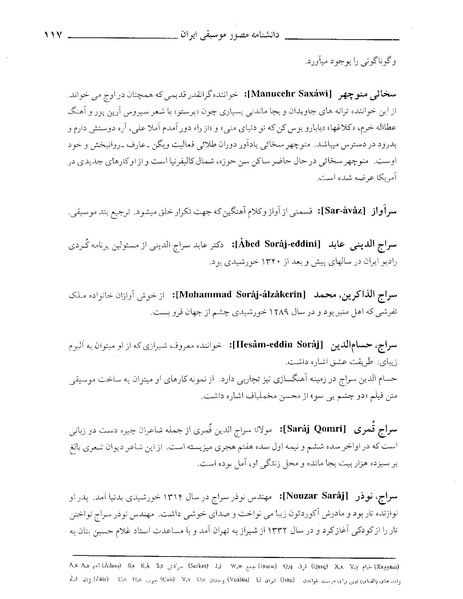 دانشنامه مصور موسیقی ایران ۱۱۷
و گوناگونی را بوجود میآورد.
سخائی منوچهر [Manucehr Saxâwi]: خواننده گرانقدر قدیمی که همچنان در اوج می خواند.
از این خواننده ترانه های جاویدان و بجا ماندنی بسیاری چون «پرستو» با شعر سیروس آرین پور و آهنگ
عطااله خرم، «کلاغها» «یا بارو بوس کن که تو دنیای منی» و «از راه دور آمدم آملا علی، آره دوستش دارم و
بدرود در دسترس میباشد. منوچهر سخائی یادآور دوران طلائی فعالیت ویگن ـ عارف ـ روانبخش و خود
اوست. منوچهر سخائی در حال حاضر ساکن سن حوزه، شمال کالیفرنیا است و از او کارهای جدیدی در
آمریکا عرضه شده است.
سرآواز [Sar-âvâz]: قسمتی از آواز و کلام آهنگین که جهت تکرار خلق میشود. ترجیع بند موسیقی.
سراج الدینی عابد [Âbed Sorâj-eddini]: دکتر عابد سراج الدینی از مسئولین برنامه کُردی
رادیو ایران در سالهای پیش و بعد از ۱۳۴۰ خورشیدی بود.
سراج الذاکرین، محمد [Mohammad Sorâj-âlzâkerin]: از خوش آوازان خانواده ملک
تفرشی که اهل منبر بود و در سال ۱۲۸۹ خورشیدی چشم از جهان فرو بست.
سراج، حسام‌الدین [Hesâm-eddin Sorâj]: خواننده معروف شیرازی که از او میتوان به آلبوم
زیبای: طریقت عشق اشاره داشت.
حسام الدین سراج در زمینه آهنگسازی نیز تجاربی دارد. از نمونه کارهای او میتوان به ساخت موسیقی
متن فیلم «دو چشم بی سو» از محسن مخملباف اشاره داشت.
سراج قُمری [Sarâj Qomri]: مولانا سراج الدین قُمری از جمله شاعران چیره دست دو زبانی
است که در اواخر سده ششم و نیمه اول سده هفتم هجری میزیسته است. از این شاعر دیوان شعری بالغ
بر سیزده هزار بیت بجا مانده و محل زندگی او، آمل بوده است.
سراج، نوذر [Nouzar Sarâj]: مهندس نوذر سراج در سال ۱۳۱۴ خورشیدی بدنیا آمد. پدر او
نوازنده تار بود و مادرش آکوردئون زیبا می نواخت و صدای خوشی داشت. مهندس نوذر سراج نواختن
تار را از کودکی آغاز کرد و در سال ۱۳۳۲ از شیراز به تهران آمد و با مساعدت استاد غلام حسین بنان به